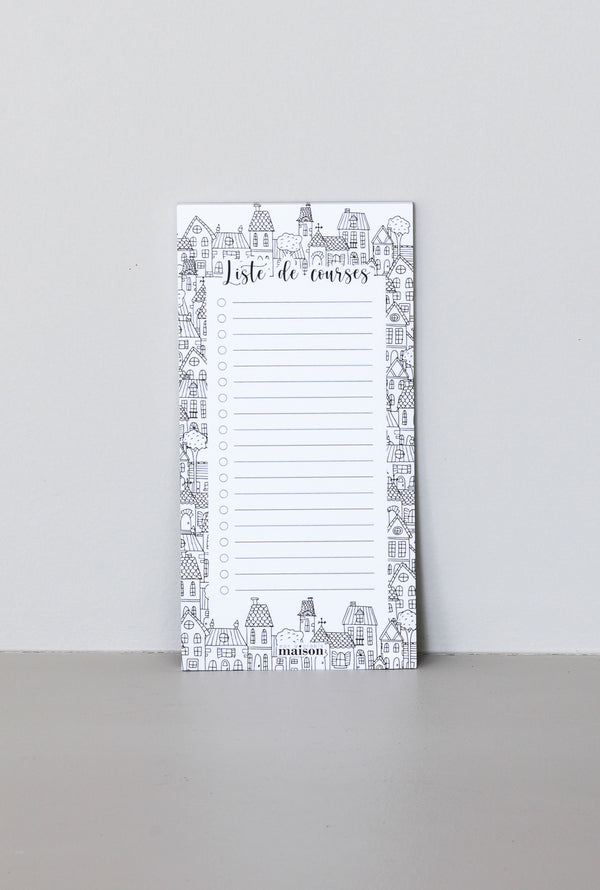 Liste de courses
maison